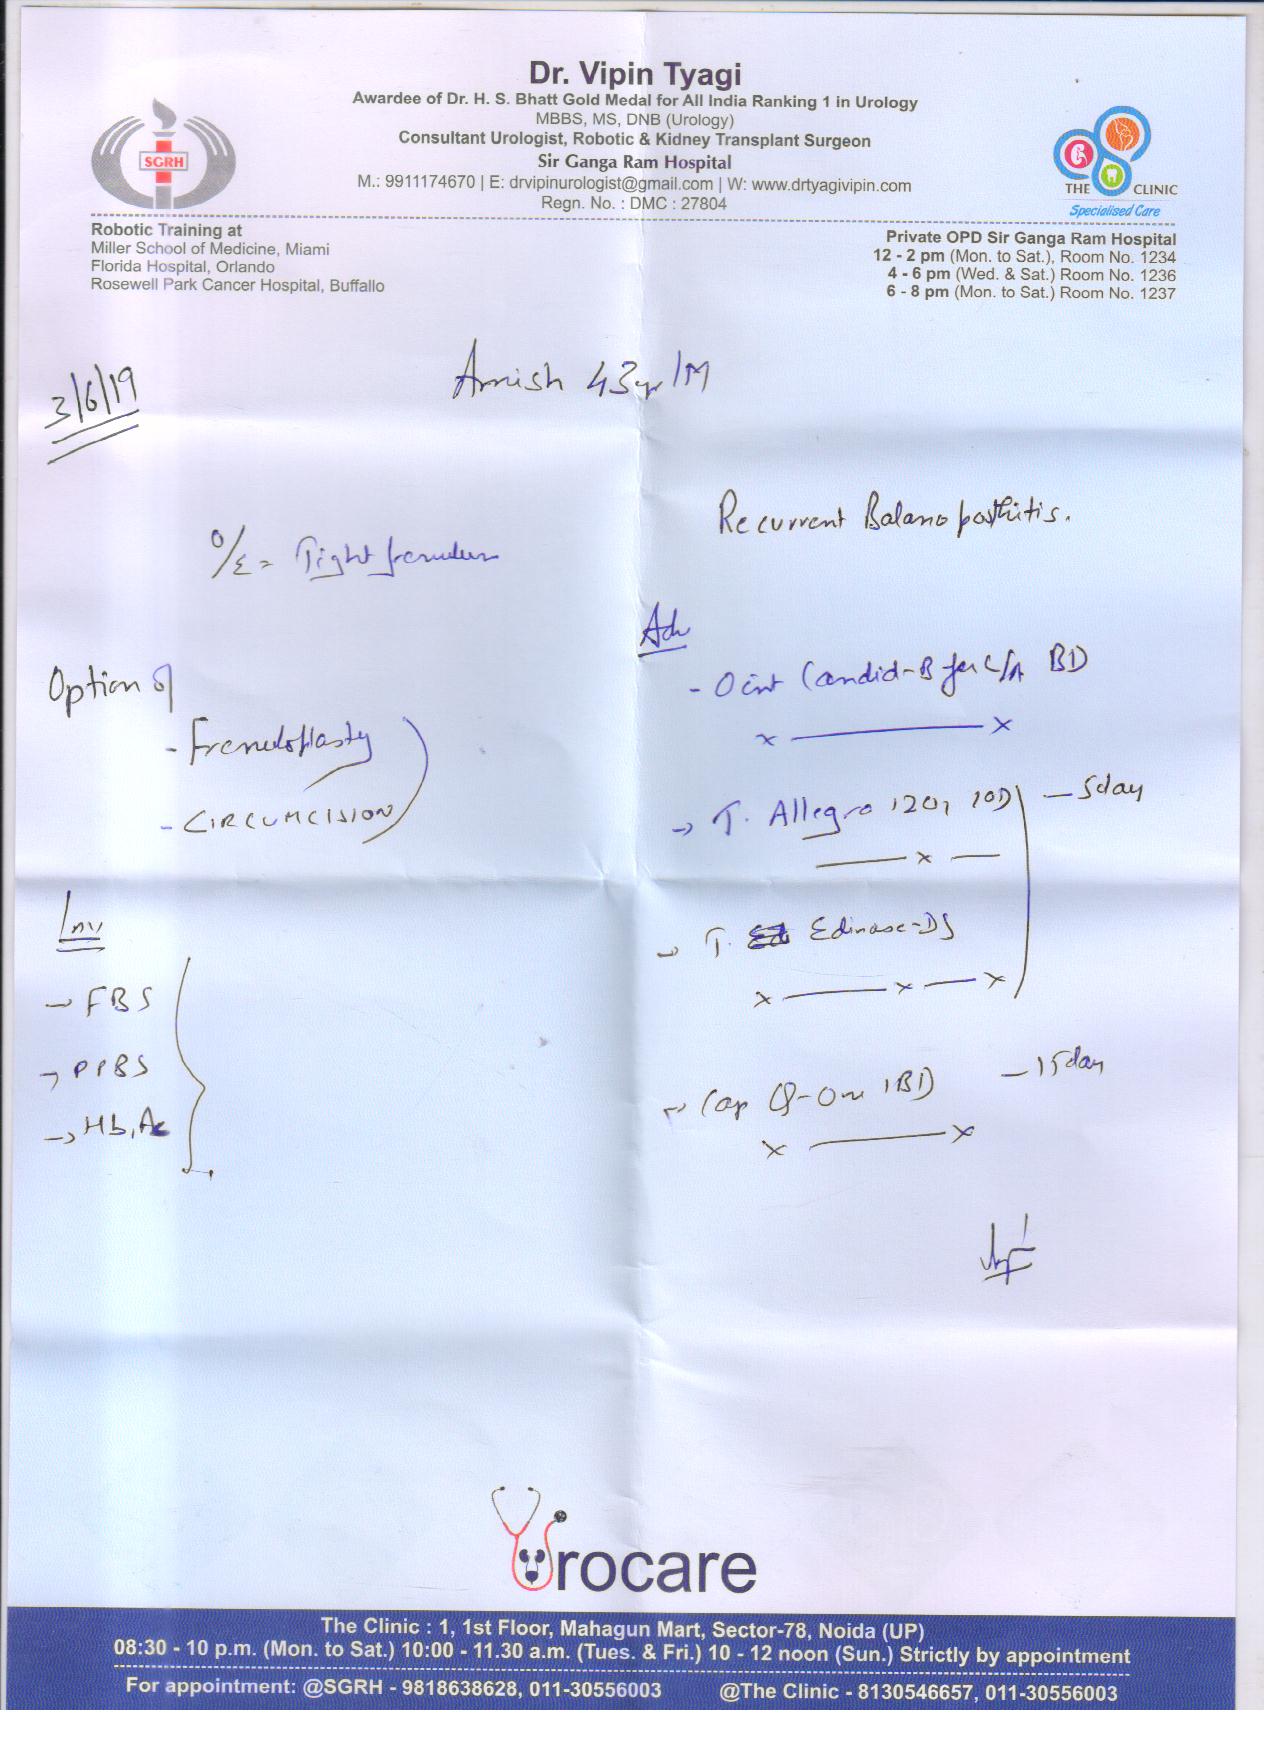 Dr. Vipin Tyagi
Awardee of Dr. H. S. Bhatt Gold Medal for All India Ranking 1 in Urology
MBBS, MS, DNB (Urology)
Consultant Urologist, Robotic & Kidney Transplant Surgeon
Sir Ganga Ram Hospital
M.: 9911174670 | E: drvipinurologist@gmail.com | W: www.drtyagivipin.com
Regn. No. : DMC : 27804
SGRH
THE CLINIC
Specialised Care
Robotic Training at
Miller School of Medicine, Miami
Florida Hospital, Orlando
Rosewell Park Cancer Hospital, Buffallo
Private OPD Sir Ganga Ram Hospital
12 - 2 pm (Mon. to Sat.), Room No. 1234
4 - 6 pm (Wed. & Sat.) Room No. 1236
6 - 8 pm (Mon. to Sat.) Room No. 1237
3/6/19
43yr/M
Recurrent Balanoposthitis.
O/E = Tight frenulum
Adv
Option of
- Oint Candid-B for L/A BD
x — x
- Frenuloplasty
- CIRCUMCISION
→ T. Allegra 120, 1OD — 5day
— x —
Inv
→ T. Edinase-DS
x — x — x
→ FBS
→ PPBS
→ Cap Q-One 1BD — 15day
x — x
→ Hb,Ac
Urocare
The Clinic : 1, 1st Floor, Mahagun Mart, Sector-78, Noida (UP)
08:30 - 10 p.m. (Mon. to Sat.) 10:00 - 11.30 a.m. (Tues. & Fri.) 10 - 12 noon (Sun.) Strictly by appointment
For appointment: @SGRH - 9818638628, 011-30556003 @The Clinic - 8130546657, 011-30556003